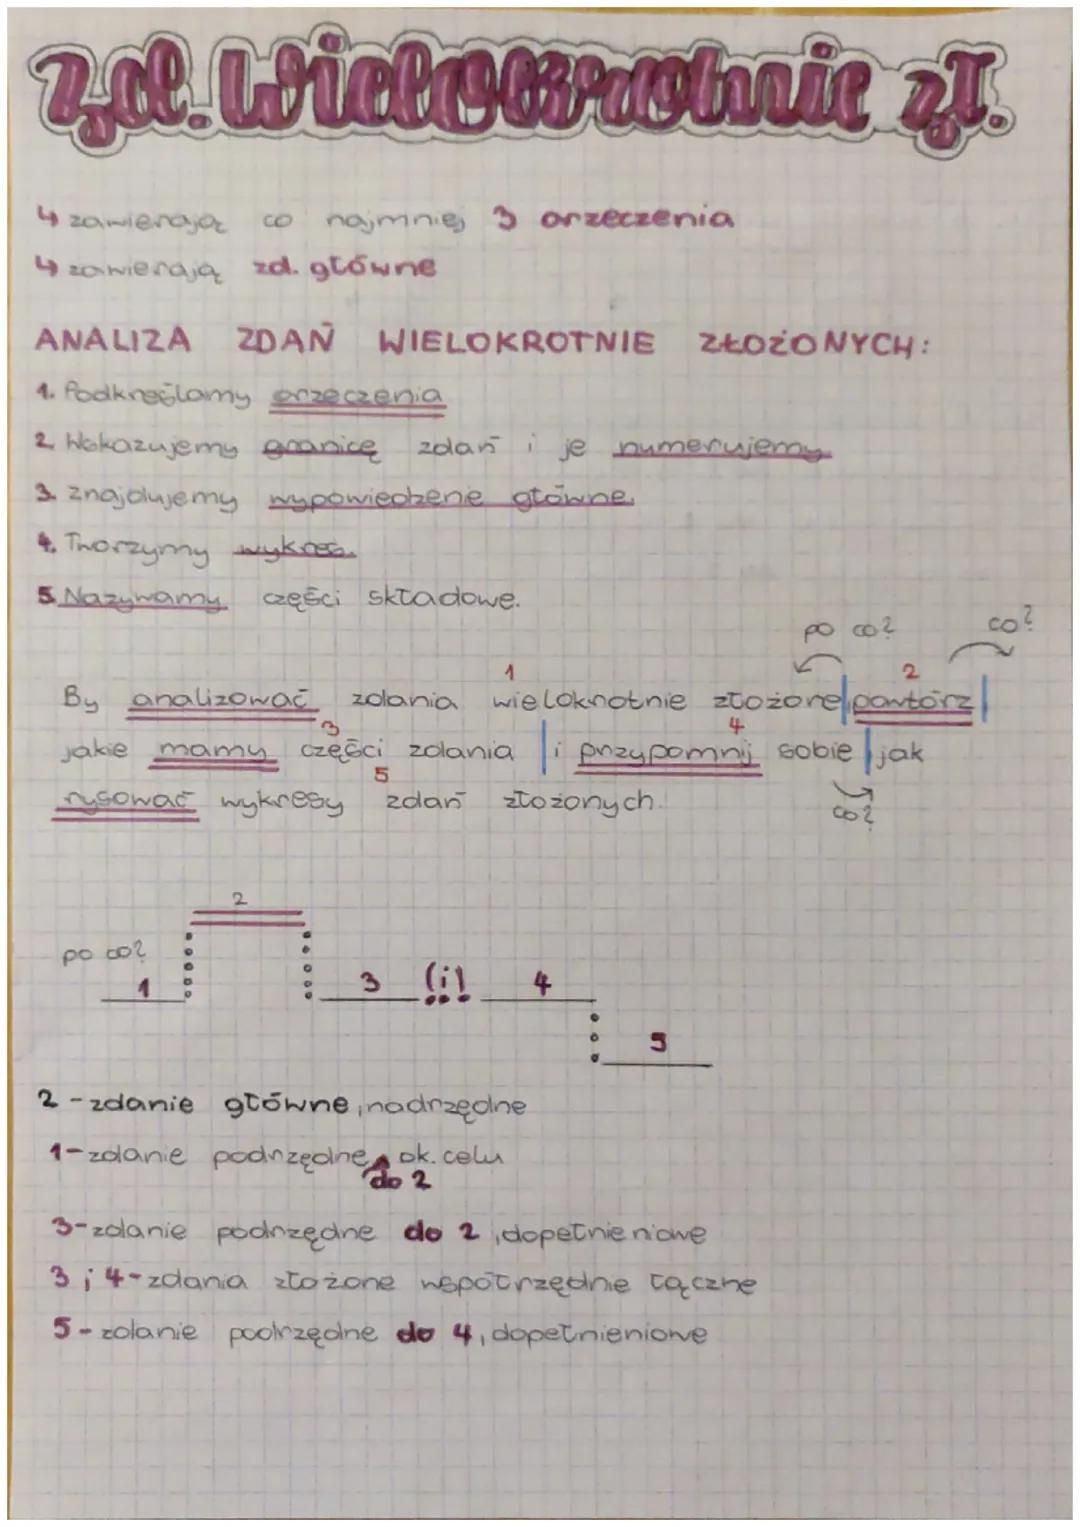 zd. wielokrotnie zł.
↳ zawierają co najmniej 3 orzeczenia
↳ zawierają zd. główne
ANALIZA ZDAŃ WIELOKROTNIE ZŁOŻONYCH:
1. Podkreślamy orzeczenia
2. Wskazujemy granicę zdań i je numerujemy
3. Znajdujemy wypowiedzenie główne.
4. Tworzymy wykres.
5. Nazywamy części składowe.
po co? co?
1 2
By analizować zdania wielokrotnie złożone, powtórz
3 4
jakie mamy części zdania i przypomnij sobie jak
5
rysować wykresy zdań złożonych.
co?
2
po co?
1 3 (i) 4
5
2 - zdanie główne, nadrzędne
1 - zdanie podrzędne do 2 ok. celu
3 - zdanie podrzędne do 2, dopełnieniowe
3 i 4 - zdania złożone współrzędnie łączne
5 - zdanie podrzędne do 4, dopełnieniowe